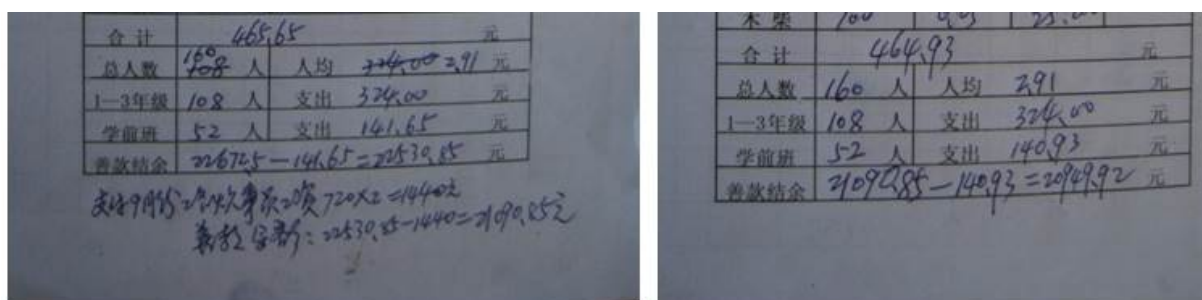 合计 465.65 元
总人数 160 人 人均 2.91 元
1—3年级 108 人 支出 324.00 元
学前班 52 人 支出 141.65 元
善款结余 22672.5-141.65=22530.85 元
支付9月份2名炊事员工资720×2=1440元
善款结余:22530.85-1440=21090.85元
木柴 100 25.00
合计 464.93 元
总人数 160 人 人均 2.91 元
1—3年级 108 人 支出 324.00 元
学前班 52 人 支出 140.93 元
善款结余 21090.85-140.93=20949.92 元